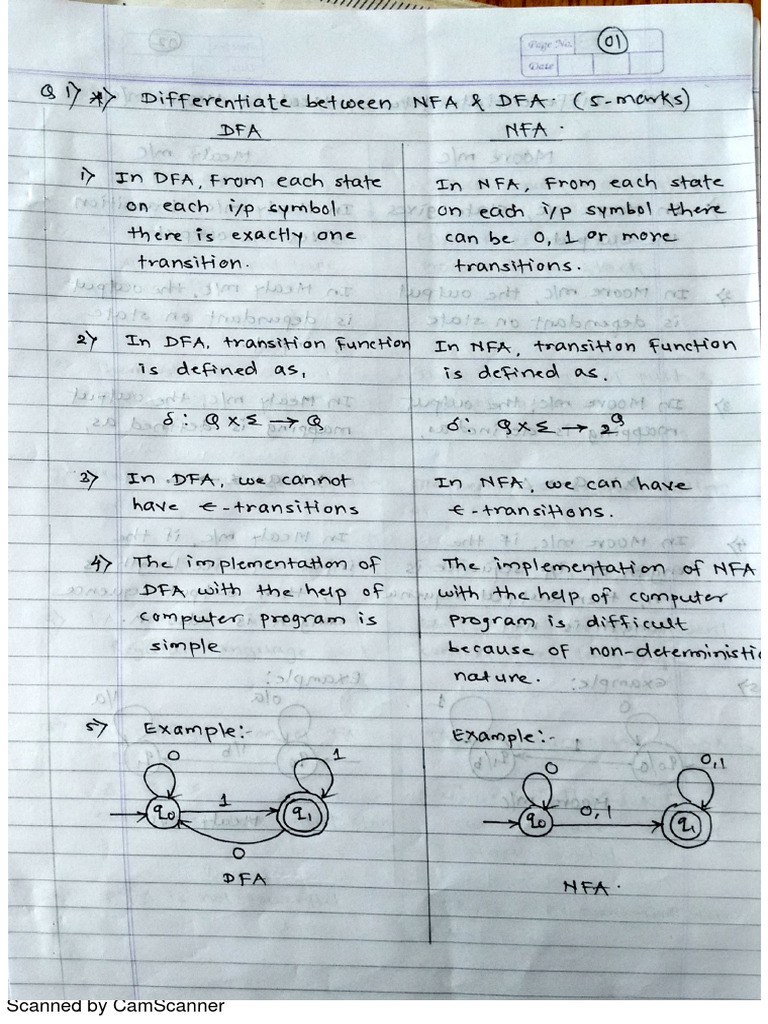 Page No. 01
Date
Q 1) *) Differentiate between NFA & DFA. (5-marks)
DFA
1) In DFA, From each state
on each i/p symbol
there is exactly one
transition.
2) In DFA, transition Function
is defined as,
δ: Q × Σ → Q
3) In DFA, we cannot
have ϵ-transitions
4) The implementation of
DFA with the help of
computer program is
simple
5) Example:-
0
1
q0
1
q1
0
DFA
NFA.
In NFA, From each state
on each i/p symbol there
can be 0, 1 or more
transitions.
In NFA, transition Function
is defined as.
δ: Q × Σ → 2^Q
In NFA, we can have
ϵ-transitions.
The implementation of NFA
with the help of computer
program is difficult
because of non-deterministic
nature.
Example:-
0
0,1
q0
0,1
q1
NFA.
Scanned by CamScanner